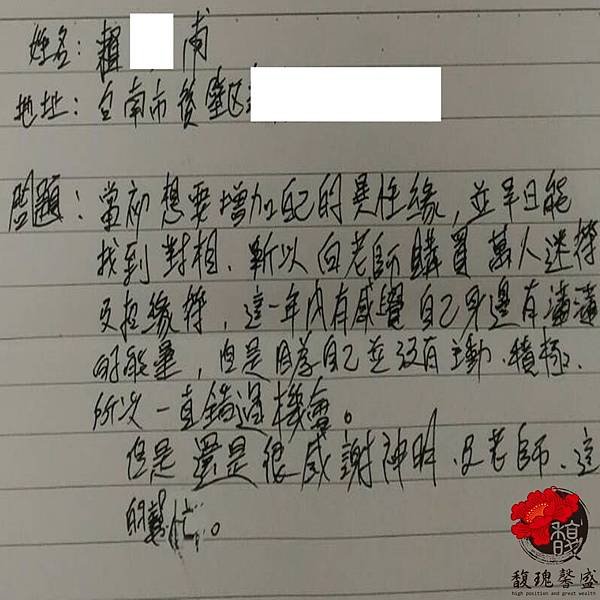 姓名：賴 甫
地址：台南市後壁區
問題：當初想要增加自己的異性緣，並早日能
找到對相、所以向老師購買萬人迷符
及招緣符，這一年內有感覺自己身邊有滿滿
的能量，但是因為自己並沒有主動、積極、
所以一直錯過機會。
但是還是很感謝神明、及老師、這
的幫忙。
馥瑰馨盛
high position and great wealth